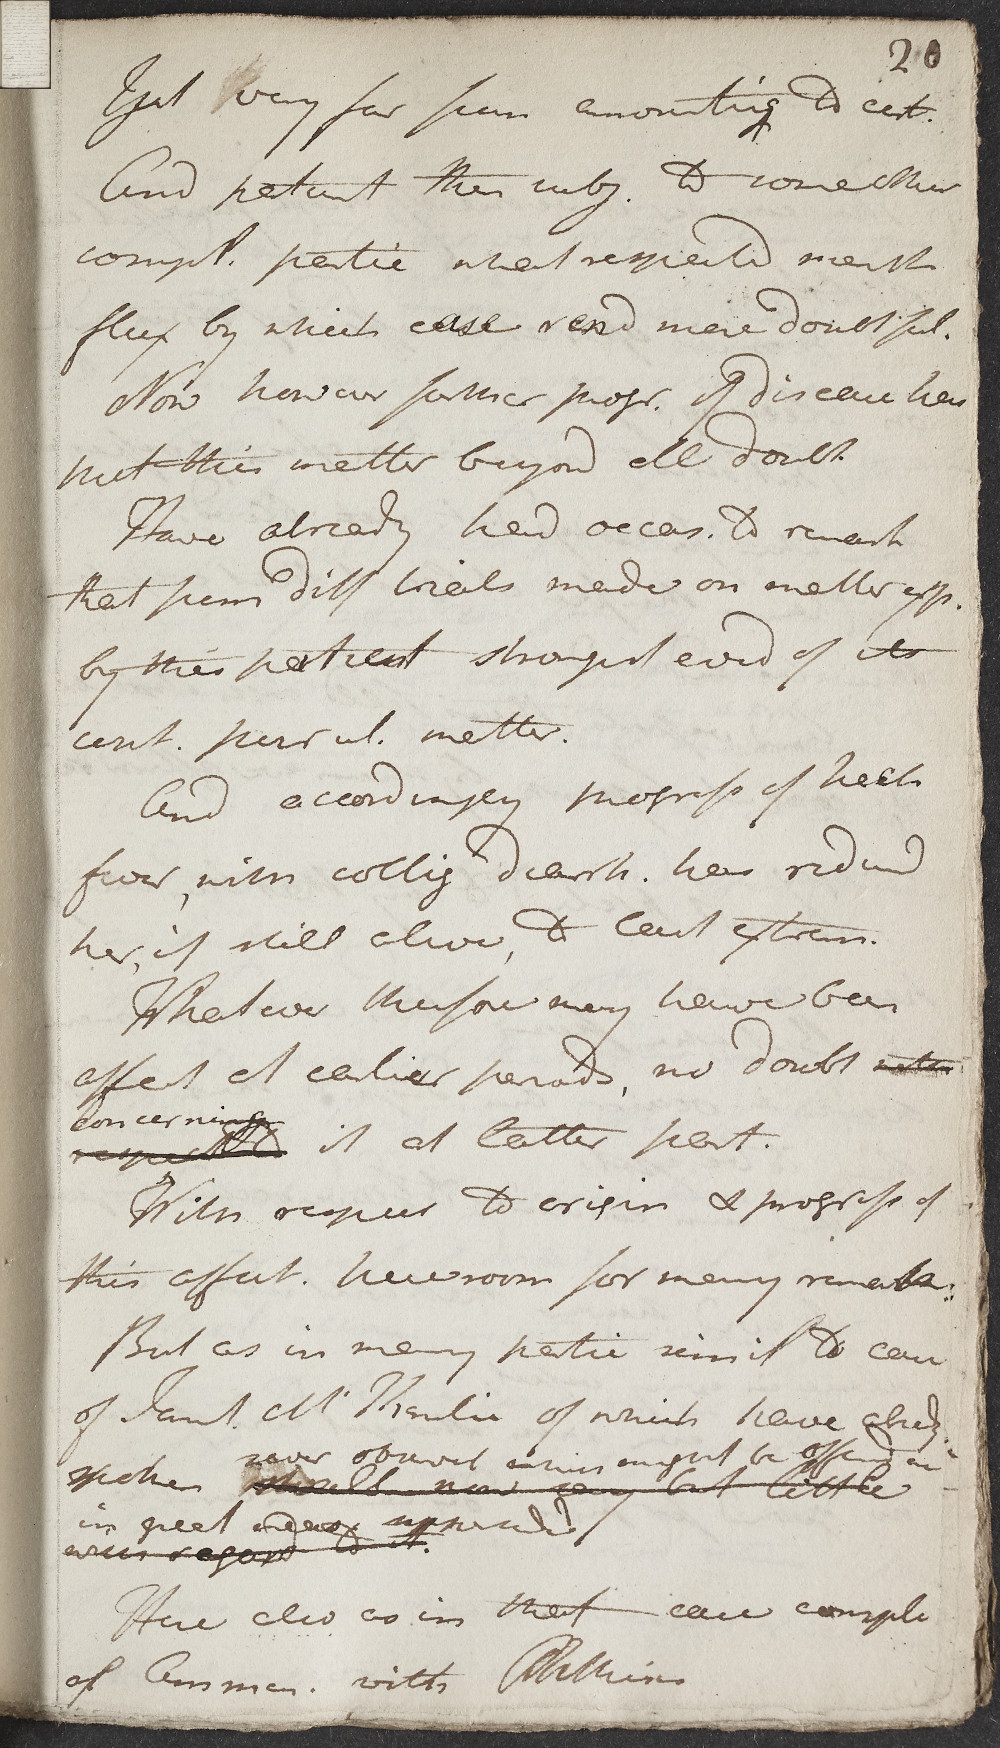 20
Yet very far from amounting to cert.
And patient then subj. to some other
compl. partic what respected menst
flux by which case rend more doubtful.
Now however farther progr. of disease has
put this matter beyond all doubt
Have already had occas. to remark
that from diff trials made on matter exp.
by this patient strongest evid of its
cont. purul. matter.
And accordingly progress of hect
fever, with collig diarrh. has reduced
her, if still alive, to last extrem.
Whatever therefore may have been
affect at earlier periods, no doubt
concerning
respect it at latter part.
With respect to origin & progress of
this affect. have room for many remark:
But as in many partic simil to case
of Janet Mc of which have alredy
spoken never observat which might be offered
shall now say but little
in great
with regard to it.
Here also as in that case compl
of Commen. with Phthisis